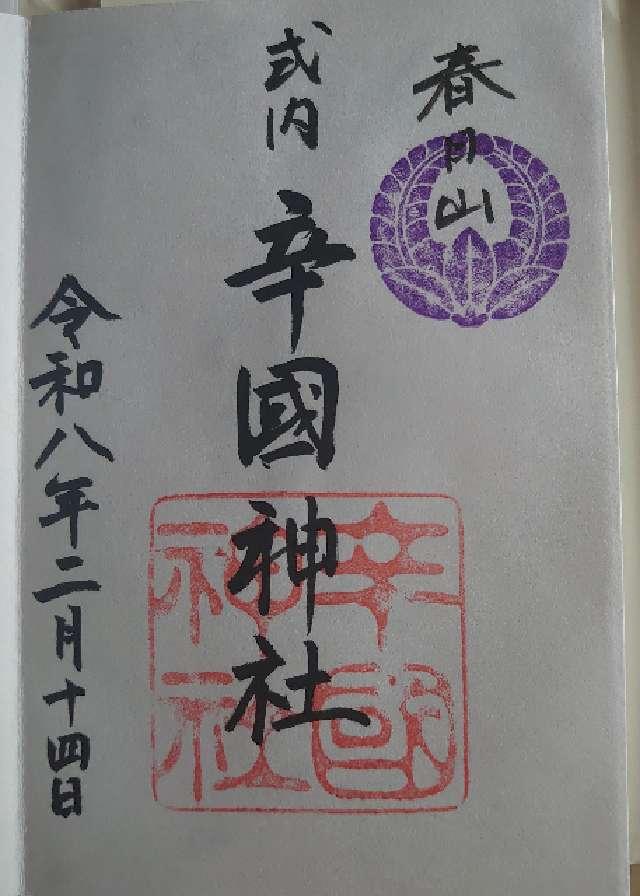 春日山
式内
辛國神社
辛國
神社
令和八年二月十四日